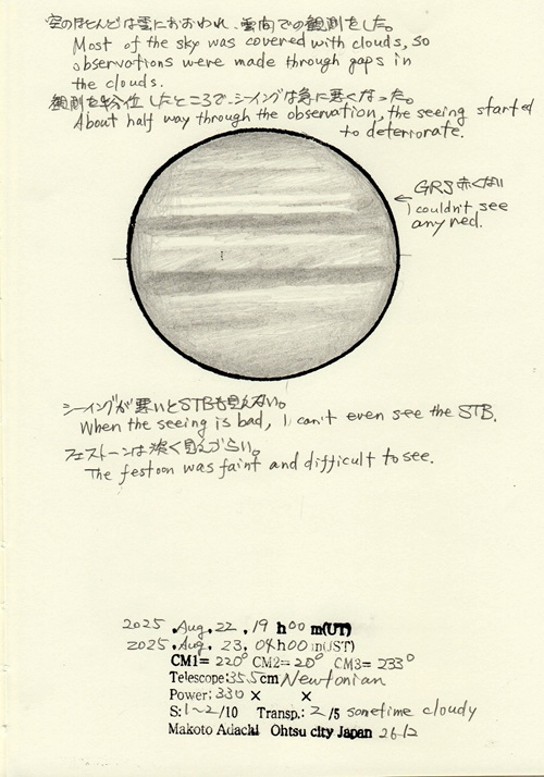 空のほとんどは雲におおわれ、雲間での観測をした。
Most of the sky was covered with clouds, so
observations were made through gaps in
the clouds.
観測を半分位したところで、シーイングは急に悪くなった。
About half way through the observation, the seeing started
to deteriorate.
GRS 赤くない
I couldn't see
any red.
シーイングが悪いとSTBも見えない。
When the seeing is bad, I can't even see the STB.
フェストーンは淡く見えづらい。
The festoon was faint and difficult to see.
2025 . Aug. 22 . 19 h 00 m(UT)
2025 . Aug. 23 . 04 h 00 m(JST)
CM1= 220° CM2= 20° CM3= 233°
Telescope: 35.5cm Newtonian
Power: 330 × ×
S: 1~2/10 Transp.: 2/5 sometime cloudy
Makoto Adachi Ohtsu city Japan 26-12